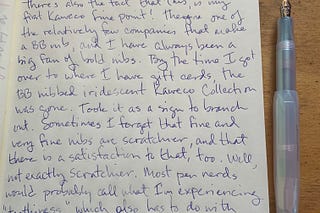 There's also the fact that this is my
first Kaweco fine point! They're one of
the relatively few companies that make
a BB nib, and I have always been a
big fan of bold nibs. By the time I got
over to where I have gift cards, the
BB nibbed iridescent Kaweco Collection
was gone. Took it as a sign to branch
out. Sometimes I forget that fine and
very fine nibs are scratchier, and that
there is a satisfaction to that, too. Well,
not exactly scratchier. Most pen nerds
would probably call what I'm experiencing
"toothiness" which also has to do with